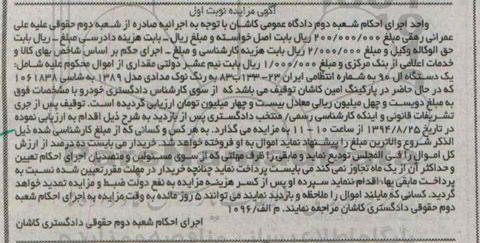 آگهی مزایده نوبت اول
واحد اجرای احکام شعبه دوم دادگاه عمومی کاشان با توجه به اجرائیه صادره از شعبه دوم حقوقی علیه علی
عمرانی رمقی مبلغ ۲۰۰/۰۰۰/۰۰۰ ریال بابت اصل خواسته و مبلغ ریال- بابت هزینه دادرسی مبلغ- ریال بابت
حق الوکاله وکیل و مبلغ ۲/۰۰۰/۰۰۰ ریال بابت هزینه کارشناسی و مبلغ - اجرای حکم بر اساس شاخص بهای کالا و
خدمات اعلامی از بانک مرکزی و مبلغ ۱/۰۰۰/۰۰۰ ریال بابت نیم عشر دولتی مقداری از اموال محکوم علیه شامل:
یک دستگاه ال ۹۰ به شماره انتظامی ایران ۲۳-۱۳۳ب۸۳ به رنگ نوک مدادی مدل ۱۳۸۹ به شاسی ۱۰۶۱۸۳۸
که در حال حاضر در پارکینگ امین کاشان توقیف می باشد که از سوی کارشناس دادگستری خودرو با مشخصات فوق
به مبلغ دویست و چهل میلیون ریالی معادل بیست و چهار میلیون تومان ارزیابی گردیده است. توقیف پس از جری
تشریفات قانونی و اینکه کارشناسی رسمی/ منتخب دادگستری پس از بازدید به شرح ذیل اقدام به ارزیابی نموده
در تاریخ ۱۳۹۴/۸/۲۵ از ساعت ۱۰-۱۱ به مزایده می گذارد. به هر کس و کسانی که از مبلغ کارشناسی شده ذیل
الذکر شروع و بالاترین مبلغ را پیشنهاد نماید اموال به او فروخته خواهد شد. خریدار می بایست ده درصد از ارزش
کل اموال را فی المجلس تودیع نماید و مابقی را ظرف مهلتی که از سوی مسئولین و متصدیان اجرای احکام تعیین
و حداکثر آن از یک ماه تجاوز نمی کند می بایست پرداخت نماید چنانچه خریدار در مهلت مقرر تعیین شده نسبت به
پرداخت مابقی بها، اقدام ننماید سپرده او پس از کسر هزینه مزایده به نفع دولت ضبط و مزایده تمدید خواهد
گردید. کسانی که مایلند اموال را ملاحظه و بازدید نمایند می توانند ۵ روز مانده به وقت مزایده به اجرای احکام شعبه
دوم حقوقی دادگستری کاشان مراجعه نمایند. م الف/۱۰۹۶
اجرای احکام شعبه دوم حقوقی دادگستری کاشان